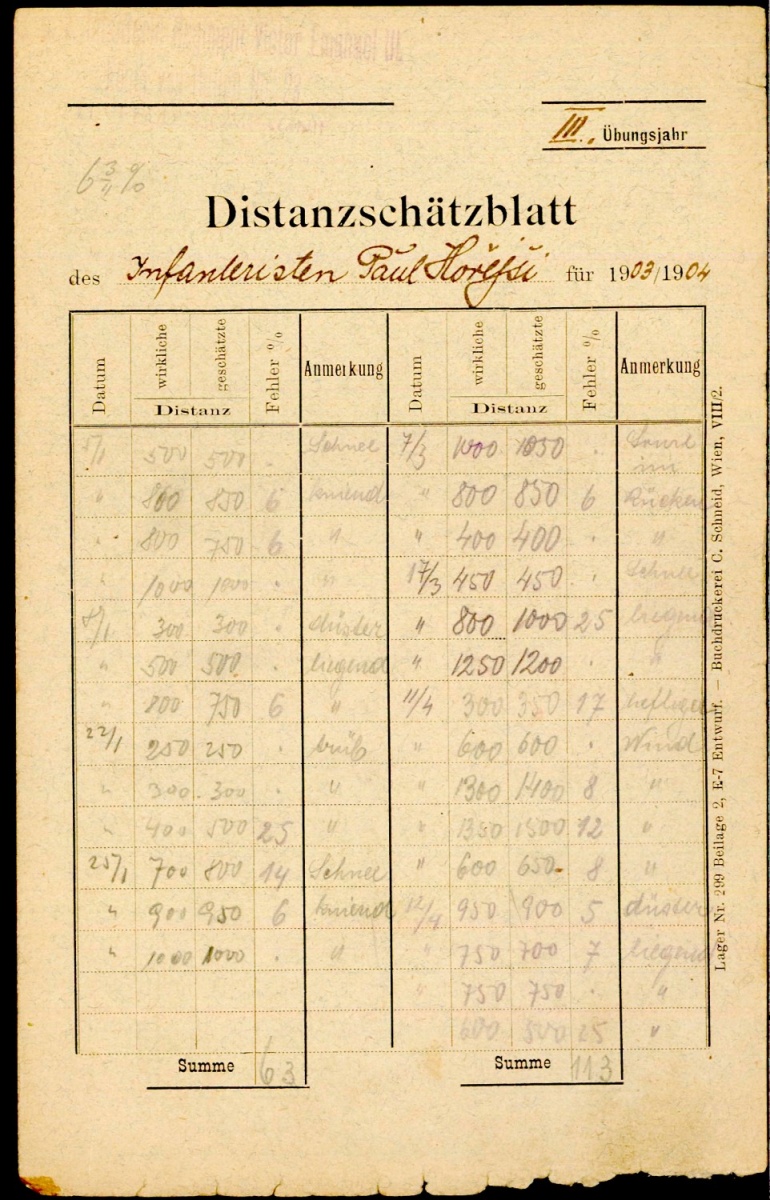 Regiment Victor Emanuel III.
III. Übungsjahr
6 3/11 %
Distanzschätzblatt
des Infanteristen Paul Hořejši für 1903/1904
Datum wirkliche geschätzte Distanz Fehler % Anmerkung Datum wirkliche geschätzte Distanz Fehler % Anmerkung
5/1 500 500 . Schnee 7/3 1000 1050 .
" 800 850 6 kniend " 800 850 6
" 800 750 6 " " 400 400 . "
" 1000 1000 . " 17/3 450 450 . Schnee
300 300 . düster " 800 1000 25 liegend
" 500 500 . liegend " 1250 1200 . "
" 800 750 6 " 11/4 300 350 17 heftiger
22/1 250 250 . trüb " 600 600 . Wind
" 300 300 . " " 1300 1400 8 "
" 400 500 25 " " 1350 1500 12 "
25/1 700 800 14 Schnee " 600 650 8 "
" 900 950 6 kniend 12/4 950 900 5 düster
" 1000 1000 . " " 750 700 7 liegend
" 750 750 . "
600 500 25 "
Summe 63 Summe 113
Lager Nr. 299 Beilage 2, E-7 Entwurf. — Buchdruckerei C. Schneid, Wien, VIII/2.